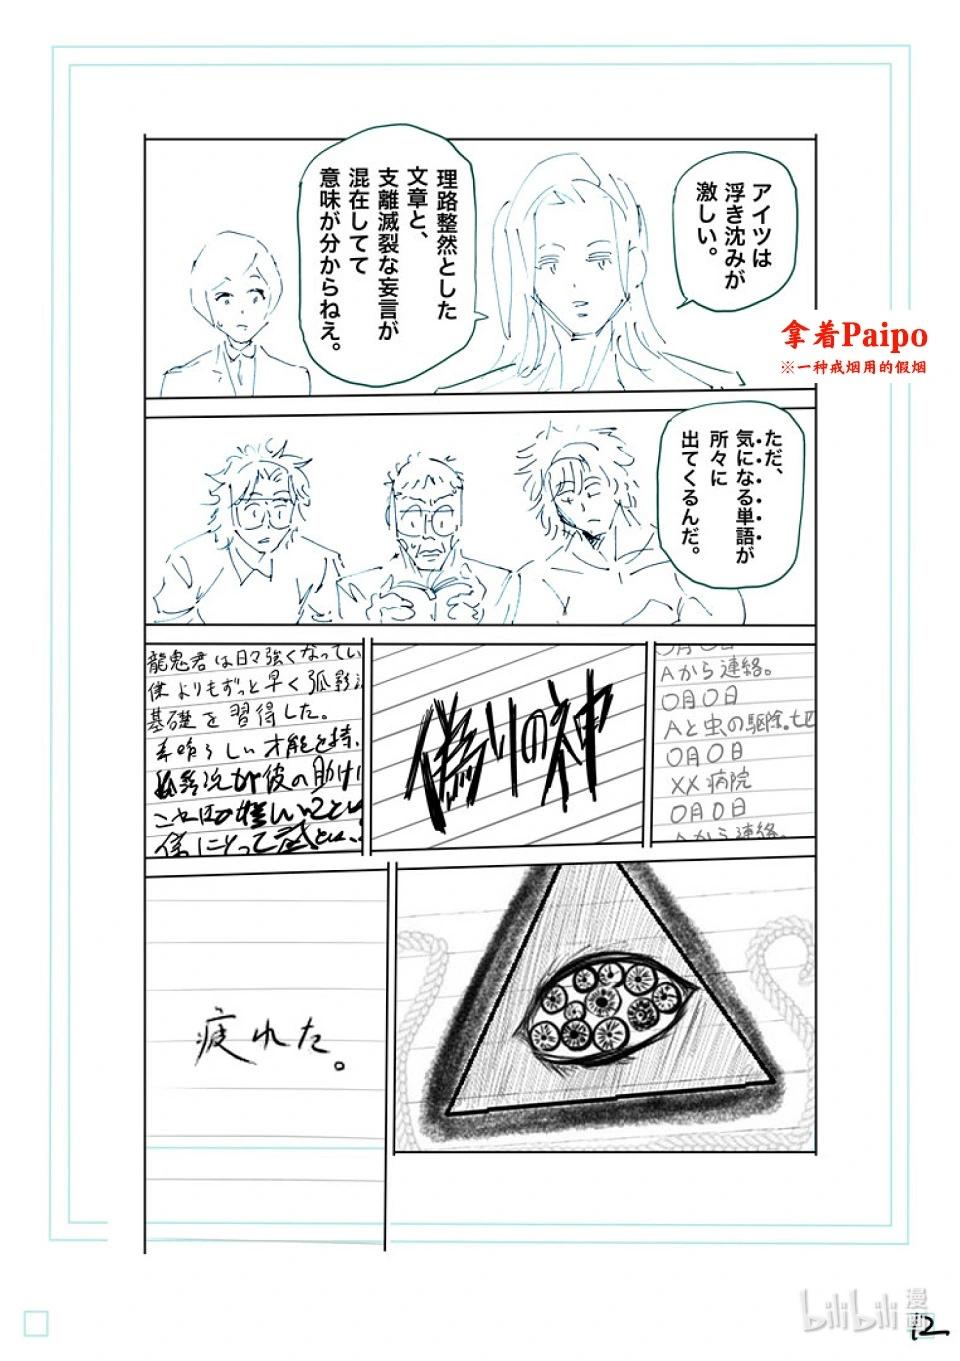 アイツは
浮き沈みが
激しい。
理路整然とした
文章と、
支離滅裂な妄言が
混在してて
意味が分からねえ。
拿着Paipo
※一种戒烟用的假烟
ただ、
気になる単語が
所々に
出てくるんだ。
〇月〇日
Aから連絡。
〇月〇日
Aと虫の駆除。
〇月〇日
XX病院
〇月〇日
Aから連絡。
偽りの神
龍鬼君は日々強くなってい
僕よりもずっと早く弧影
基礎を習得した。
素晴らしい才能を持
彼の助け
僕にとって
疲れた。
bilibili漫画
12